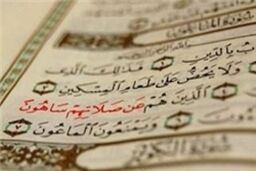 بِالدِّينِ ۝ فَذَٰلِكَ الَّذِى
وَلَا يَحُضُّ عَلَىٰ طَعَامِ الْمِسْكِينِ ۝
الَّذِينَ هُمْ عَن صَلَاتِهِمْ سَاهُونَ ۝
وَيَمْنَعُونَ الْمَاعُونَ ۝
سُورَةُ الْكَوْثَرِ